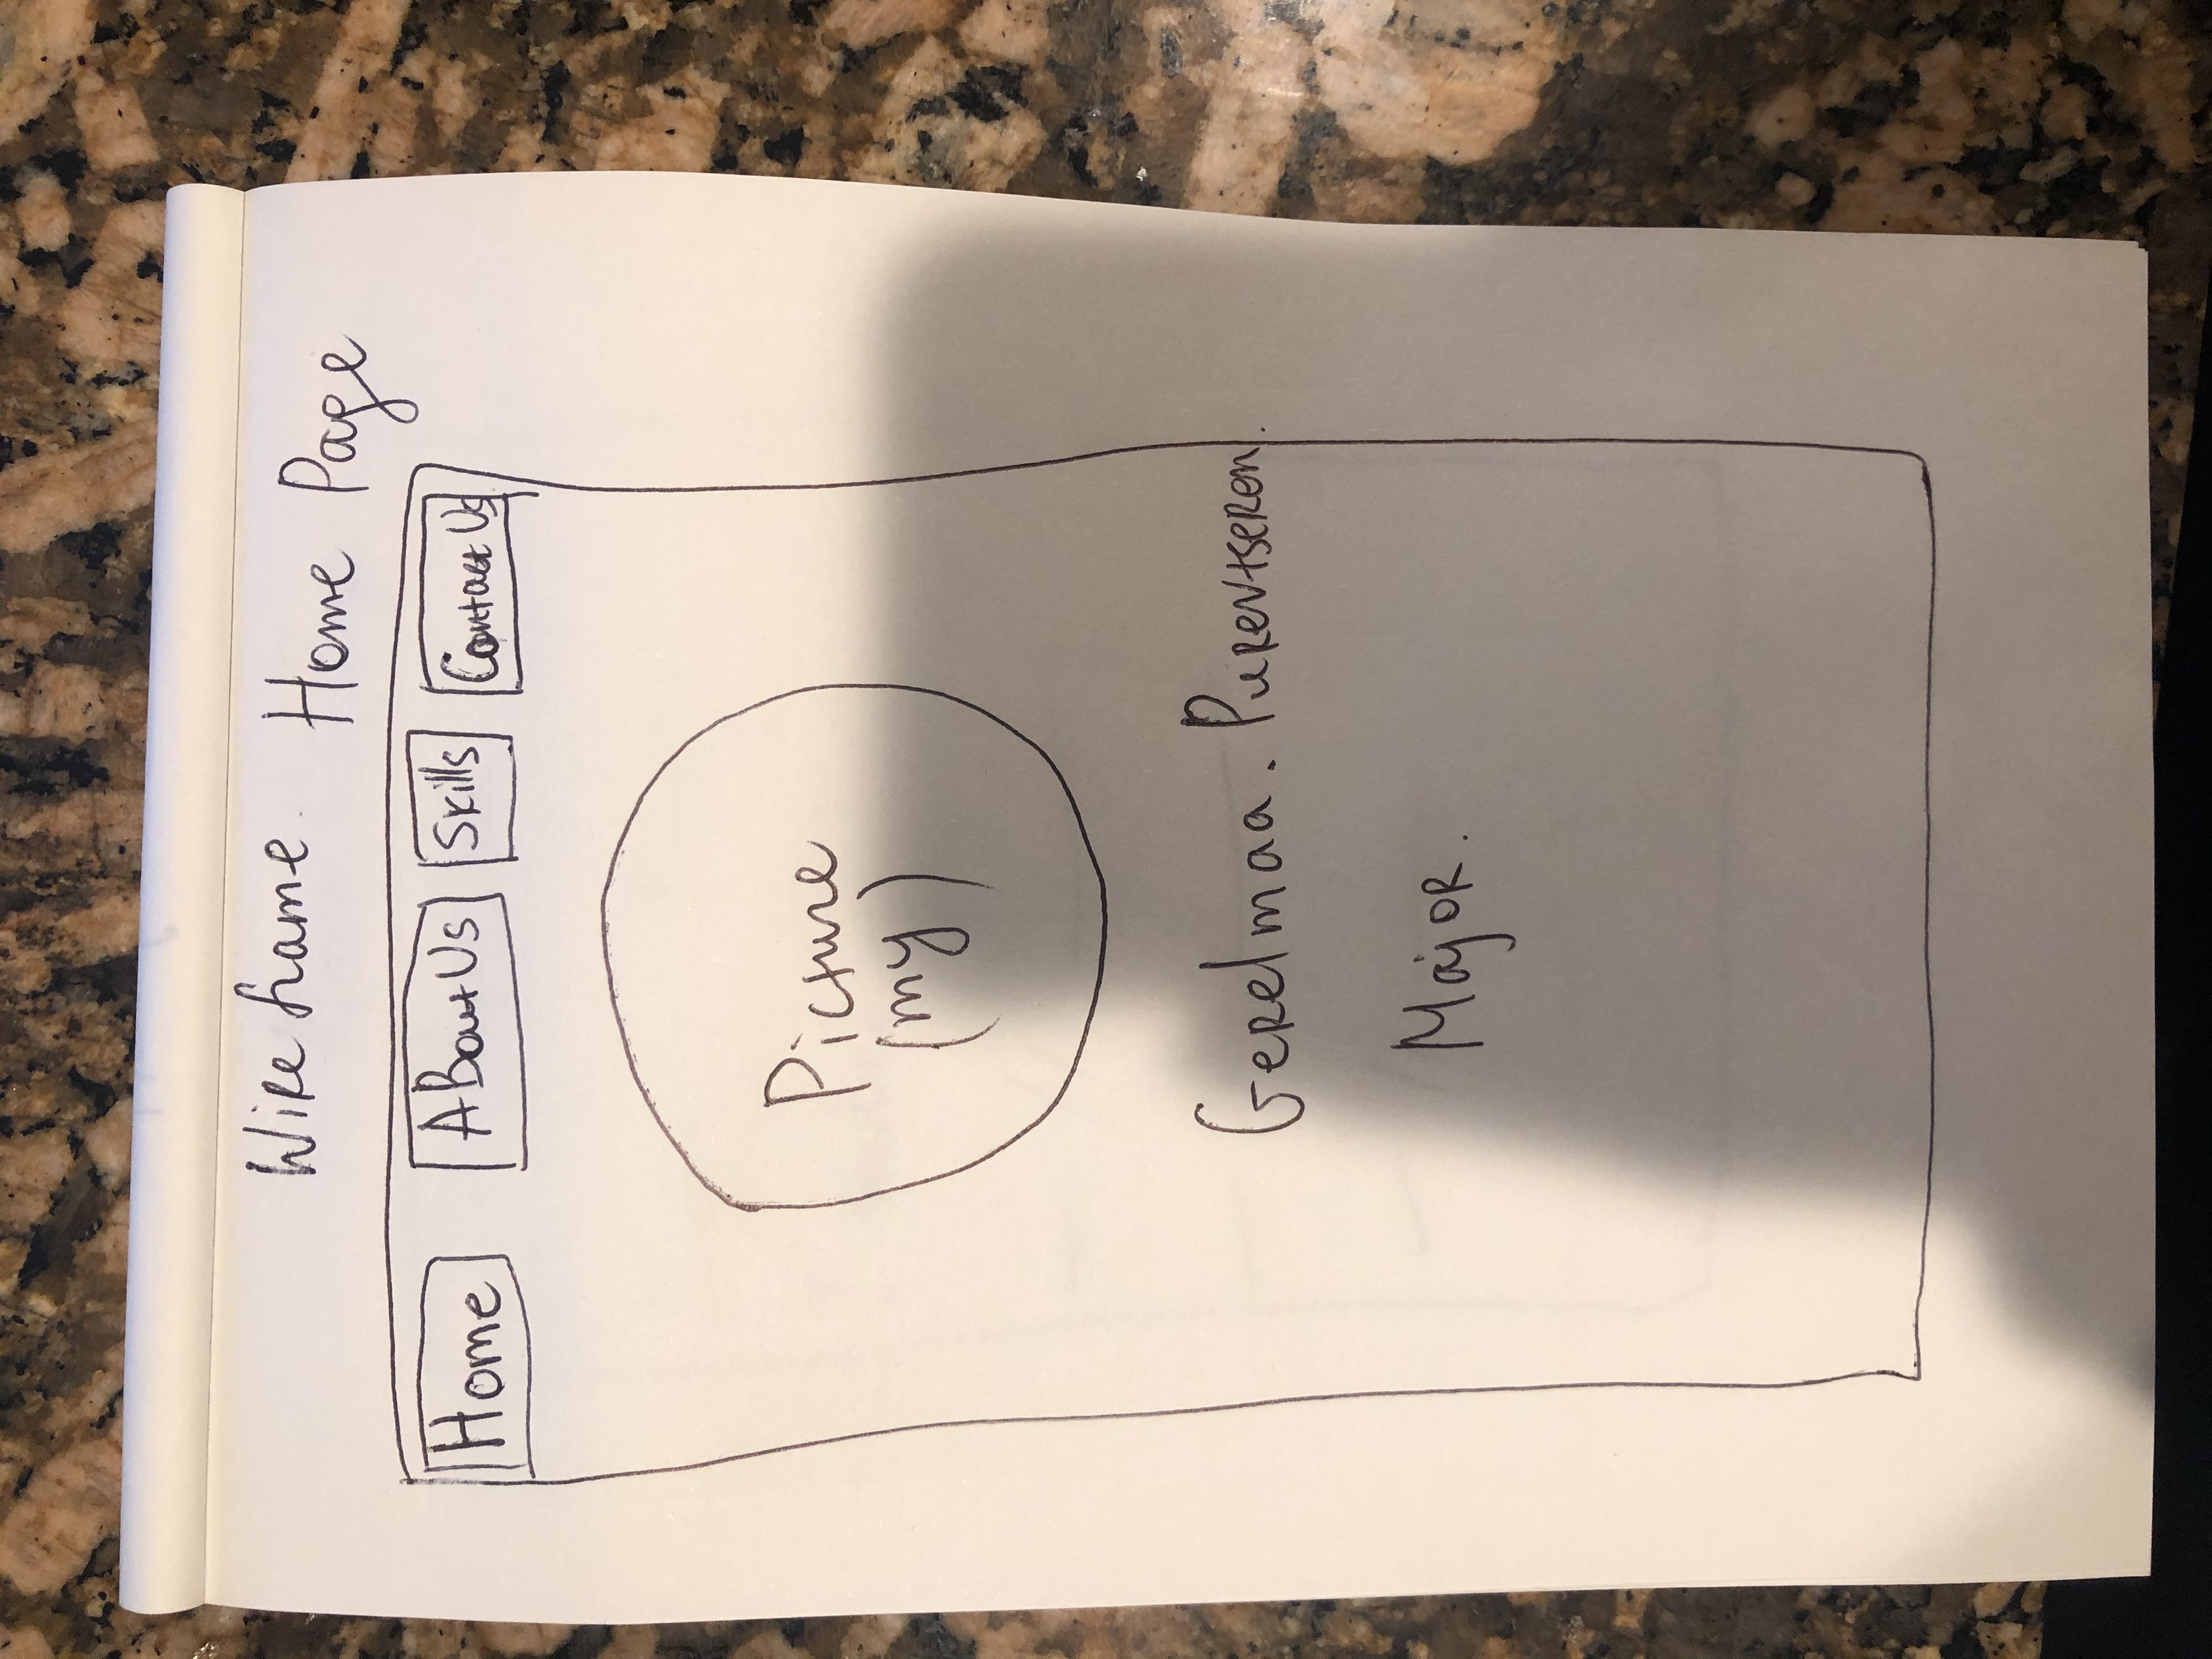 Wireframe.
Home Page
Home ABout Us Skills Contact Us
Picture
(my)
Gerelmaa. Purevtseren.
Major.